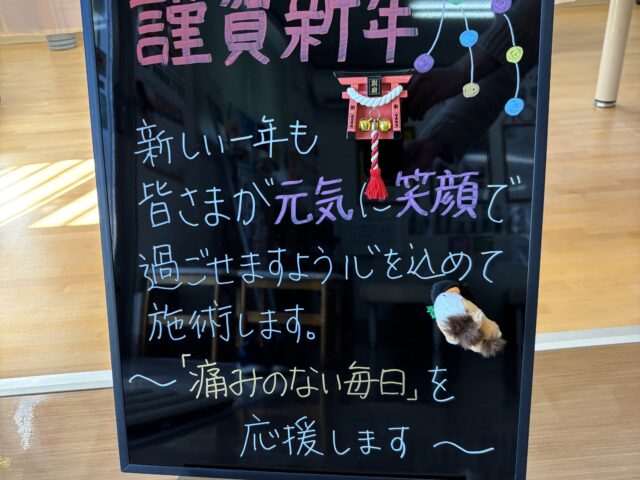 謹賀新年
新しい一年も
皆さまが元気に笑顔で
過ごせますよう心を込めて
施術します。
～「痛みのない毎日」を
応援します～